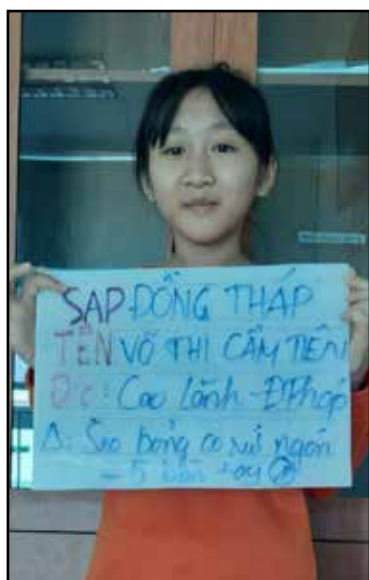 SAP ĐỒNG THÁP
TÊN VÕ THỊ CẨM TIÊN
Đ/c: Cao Lãnh - ĐTháp
Δ: Seo bỏng co rút ngón
- 5 bàn tay (P)